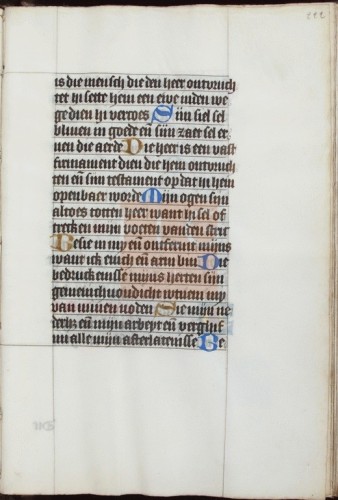 is die mensch die den heer ontvruch
tet hi sette hem een ewe inden we
ge dien hi vercoes Sijn siel sel
bliuen in goede eñ sijn zaet sel er
uen die aerde Die heer is een vast
firmament dien die hem ontvruch
ten eñ sijn testament op dat hi hem
openbaer worde Mijn ogen sijn
altoes totten heer want hi sel of
trecken mijn voeten vanden stric
Besie in mij eñ ontferm mijns
want ick enich eñ arm bin Die
bedruckenisse mijns herten sijn
gemenichuoudicht
van minen noden Sie mijn ne
der eñ mijn arbeyt eñ verghif
mi alle mijn afterlatenisse Be